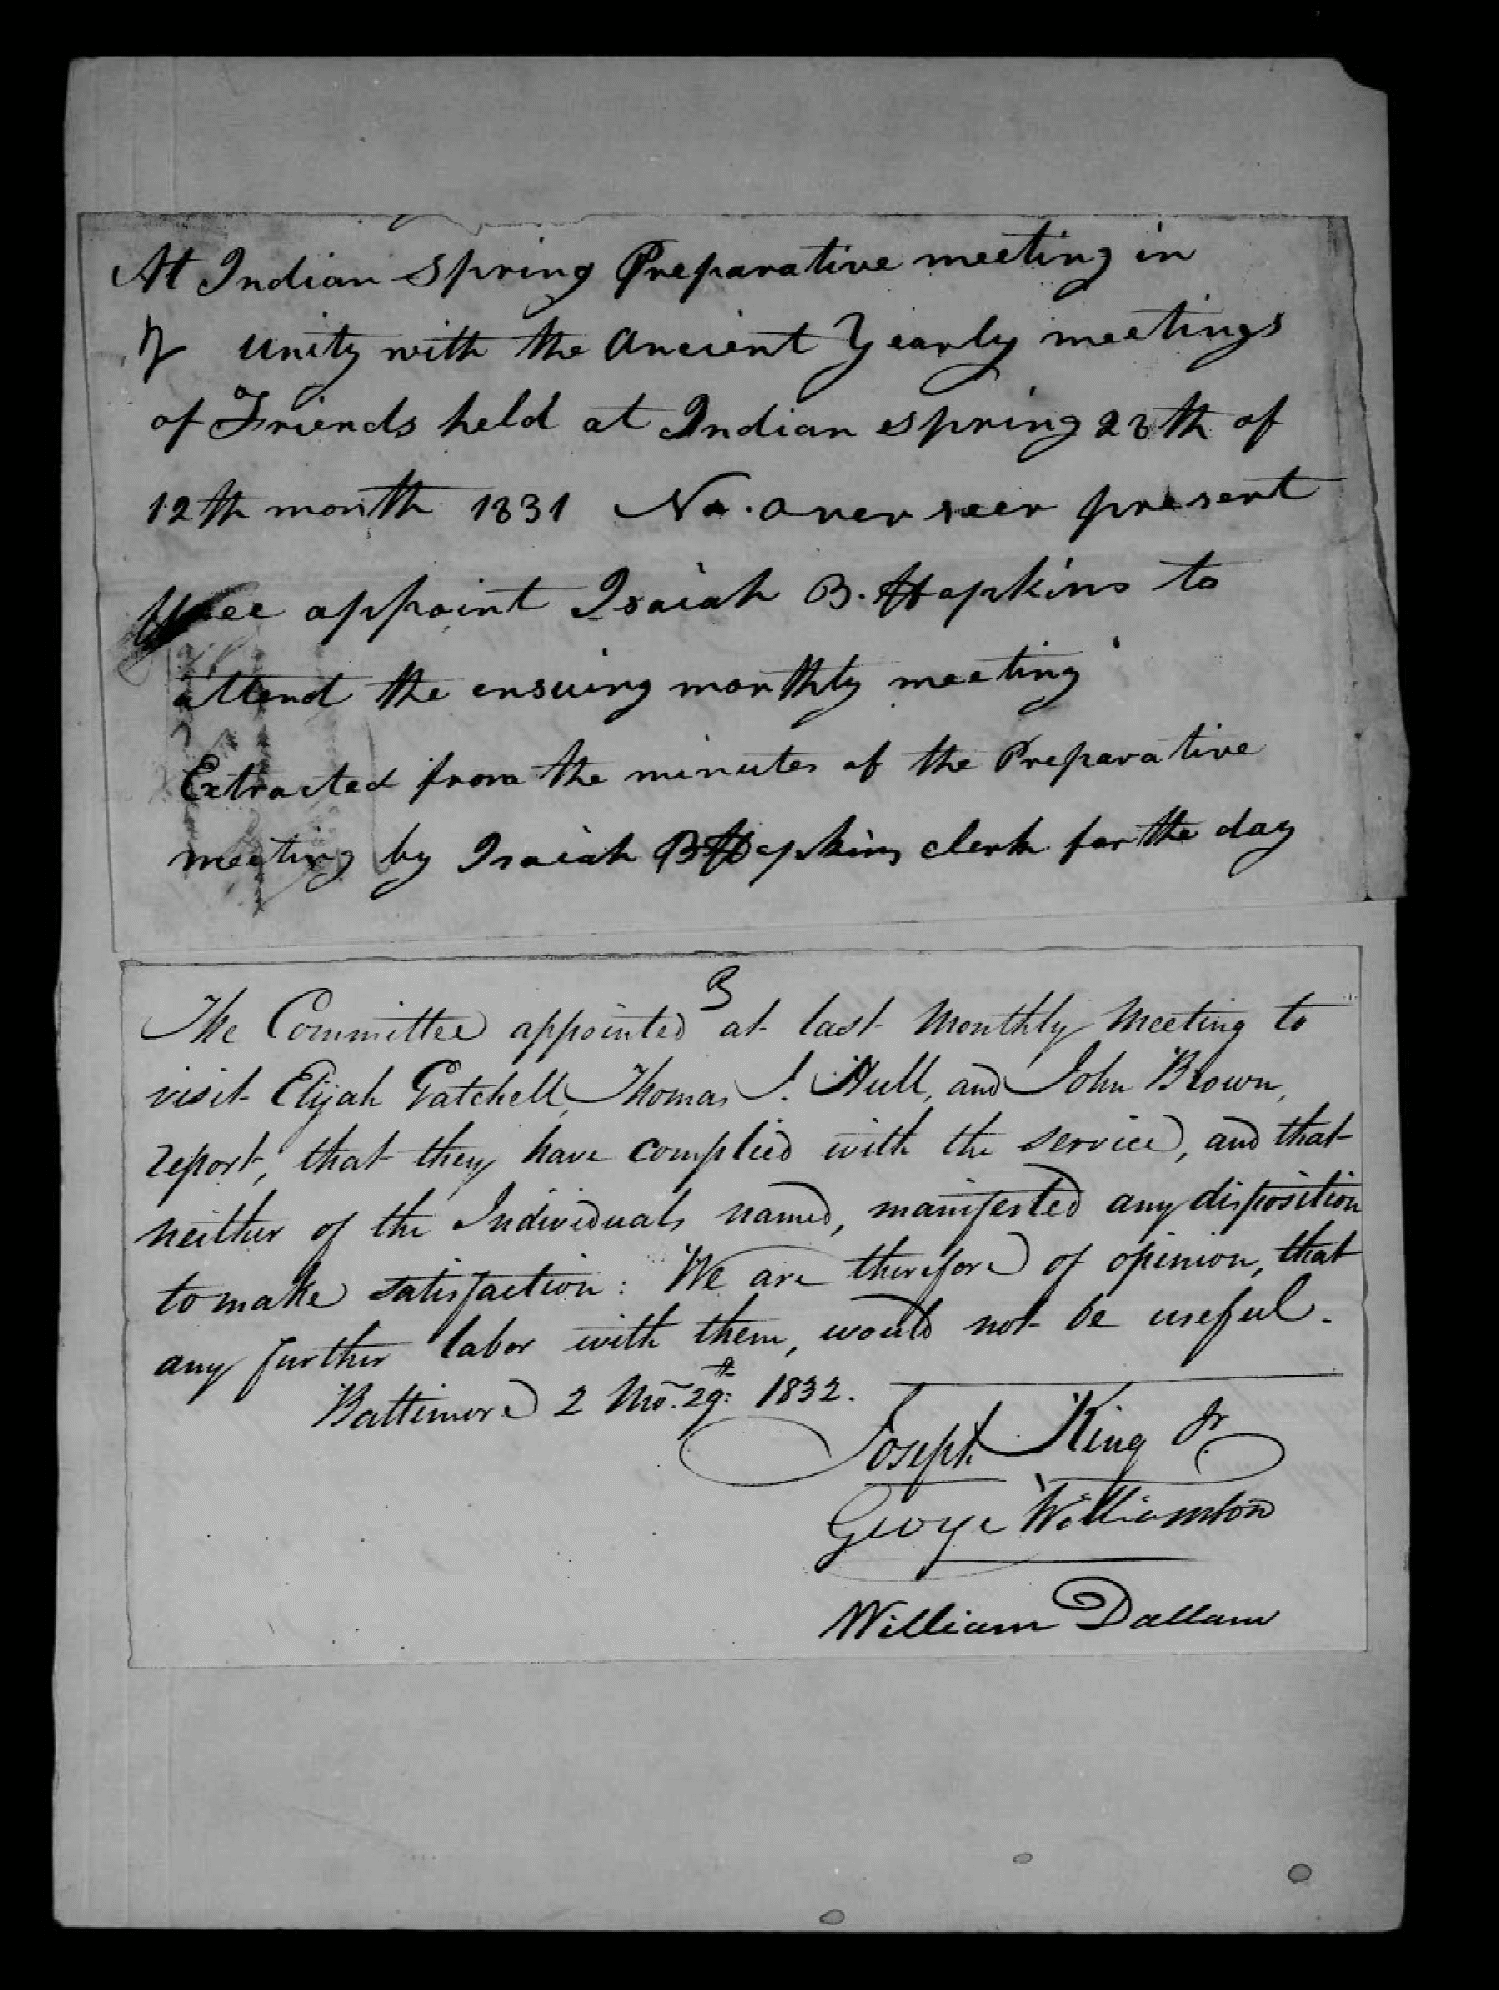 At Indian Spring Preparative meeting in
unity with the Ancient Yearly meetings
of Friends held at Indian Spring 28th of
12th month 1831 No. overseer present
Wee appoint Isaiah B. Hopkins to
attend the ensuing monthly meeting
Extracted from the minutes of the Preparative
meeting by Isaiah B Hopkins clerk for the day
3
The Committee appointed at last Monthly Meeting to
visit Elijah Gatchell, Thomas J. Hull, and John Brown,
report, that they have complied with the service, and that
neither of the Individuals named, manifested any disposition
to make satisfaction: We are therefore of opinion, that
any further labor with them, would not be useful.
Baltimore 2 Mo. 29th 1832.
Joseph King Jr
George Williamson
William Dallam